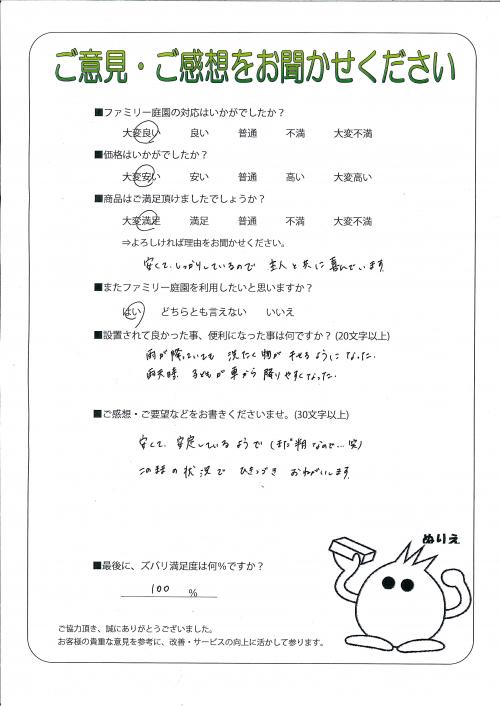 ご意見・ご感想をお聞かせください
■ファミリー庭園の対応はいかがでしたか？
大変良い 良い 普通 不満 大変不満
■価格はいかがでしたか？
大変安い 安い 普通 高い 大変高い
■商品はご満足頂けましたでしょうか？
大変満足 満足 普通 不満 大変不満
⇒よろしければ理由をお聞かせください。
安くて、しっかりしているので 主人と共に喜んでいます。
■またファミリー庭園を利用したいと思いますか？
はい どちらとも言えない いいえ
■設置されて良かった事、便利になった事は何ですか？(20文字以上)
雨が降っていても 洗たく物が干せるようになった。
雨天時、子どもが車から降りやすくなった。
■ご感想・ご要望などをお書きくださいませ。(30文字以上)
安くて、安定しているようで (まだ なので…笑)
このままの状況で ひきつづき おねがいします。
ぬりえ
■最後に、ズバリ満足度は何％ですか？
100 %
ご協力頂き、誠にありがとうございました。
お客様の貴重な意見を参考に、改善・サービスの向上に活かして参ります。